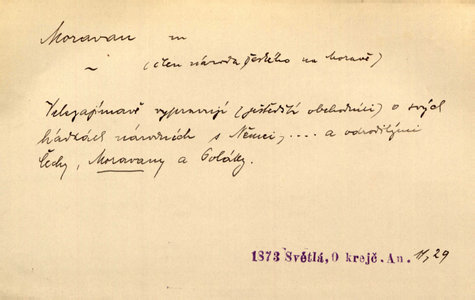 Moravan m
~ (člen národa českého na Moravě)
Velezajímavě vypravují (ještědští obchodníci) o svých
hádkách národních s Němci, .... a odrodilými
Čechy, Moravany a Poláky.
1873 Světlá, O krejč. An. II, 29